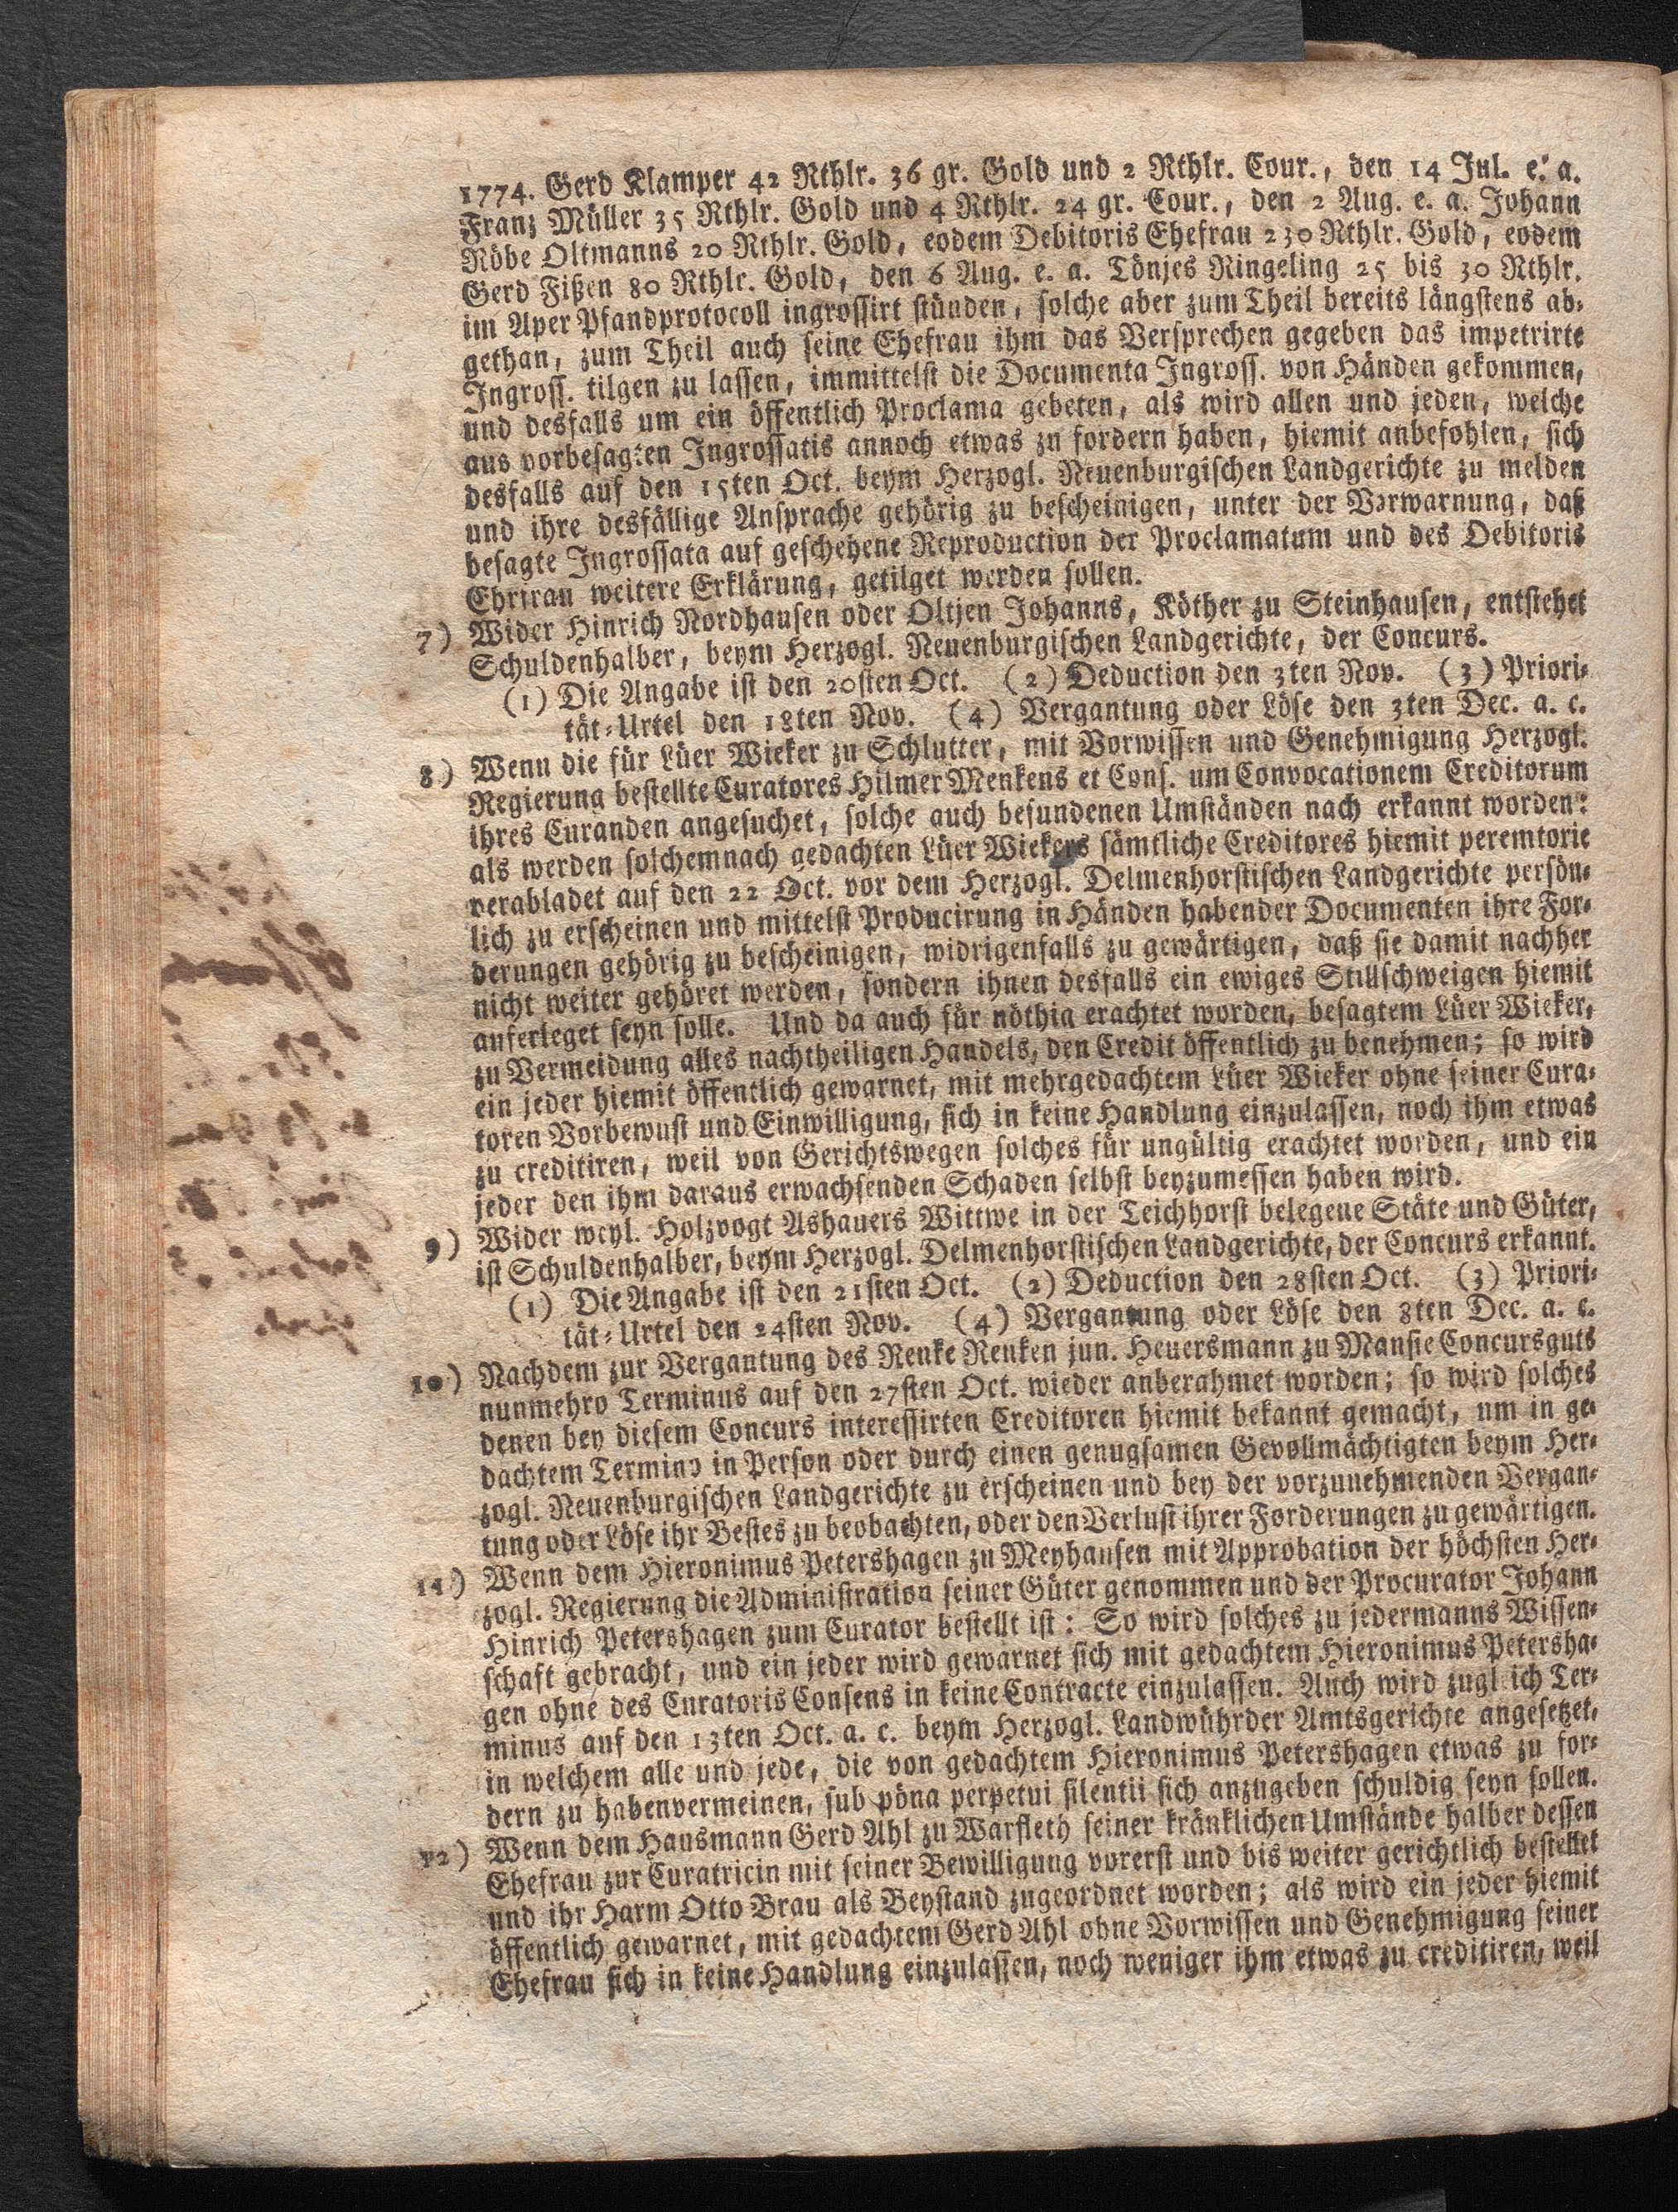 1774. Gerd Klamper 42 Rthlr. 36 gr. Gold und 2 Rthlr. Cour., den 14 Jul. e. a.
Franz Müller 35 Rthlr. Gold und 4 Rthlr. 24 gr. Cour., den 2 Aug. e. a. Johann
Röbe Oltmanns 20 Rthlr. Gold, eodem Debitoris Ehefrau 230 Rthlr. Gold, eodem
Gerd Fißen 80 Rthlr. Gold, den 6 Aug. e. a. Tönjes Ringeling 25 bis 30 Rthlr.
im Aper Pfandprotocoll ingrossirt stünden, solche aber zum Theil bereits längstens ab-
gethan, zum Theil auch seine Ehefrau ihm das Versprechen gegeben das impetrirte
Ingross. tilgen zu lassen, immittelst die Documenta Ingross. von Händen gekommen,
und desfalls um ein öffentlich Proclama gebeten, als wird allen und jeden, welche
aus vorbesagten Ingrossatis annoch etwas zu fordern haben, hiemit anbefohlen, sich
desfalls auf den 15ten Oct. beym Herzogl. Neuenburgischen Landgerichte zu melden
und ihre desfällige Ansprache gehörig zu bescheinigen, unter der Verwarnung, daß
besagte Ingrossata auf geschehene Reproduction der Proclamatum und des Debitoris
Ehrirau weitere Erklärung, getilget werden sollen.
7) Wider Hinrich Nordhausen oder Oltjen Johanns, Köther zu Steinhausen, entstehet
Schuldenhalber, beym Herzogl. Neuenburgischen Landgerichte, der Concurs.
(1) Die Angabe ist den 20sten Oct. (2) Deduction den 3ten Nov. (3) Priori-
tät-Urtel den 18ten Nov. (4) Vergantung oder Löse den 3ten Dec. a. c.
8) Wenn die für Lüer Wieker zu Schlutter, mit Vorwissen und Genehmigung Herzogl.
Regierung bestellte Curatores Hilmer Menkens et Cons. um Convocationem Creditorum
ihres Curanden angesuchet, solche auch befundenen Umständen nach erkannt worden:
als werden solchemnach gedachten Lüer Wiekers sämtliche Creditores hiemit peremtorie
verabladet auf den 22 Oct. vor dem Herzogl. Delmenhorstischen Landgerichte persön-
lich zu erscheinen und mittelst Producirung in Händen habender Documenten ihre For-
derungen gehörig zu bescheinigen, widrigenfalls zu gewärtigen, daß sie damit nachher
nicht weiter gehöret werden, sondern ihnen desfalls ein ewiges Stillschweigen hiemit
auferleget seyn solle. Und da auch für nöthig erachtet worden, besagtem Lüer Wieker,
zu Vermeidung alles nachtheiligen Handels, den Credit öffentlich zu benehmen; so wird
ein jeder hiemit öffentlich gewarnet, mit mehrgedachtem Lüer Wieker ohne seiner Cura-
toren Vorbewust und Einwilligung, sich in keine Handlung einzulassen, noch ihm etwas
zu creditiren, weil von Gerichtswegen solches für ungültig erachtet worden, und ein
jeder den ihm daraus erwachsenden Schaden selbst beyzumessen haben wird.
9) Wider weyl. Holzvogt Ashauers Wittwe in der Teichhorst belegene Stäte und Güter,
ist Schuldenhalber, beym Herzogl. Delmenhorstischen Landgerichte, der Concurs erkannt.
(1) Die Angabe ist den 21sten Oct. (2) Deduction den 28sten Oct. (3) Priori-
tät-Urtel den 24sten Nov. (4) Vergantung oder Löse den 8ten Dec. a. c.
10) Nachdem zur Vergantung des Renke Renken jun. Heuersmann zu Mansie Concursguts
nunmehro Terminus auf den 27sten Oct. wieder anberahmet worden; so wird solches
denen bey diesem Concurs interessirten Creditoren hiemit bekannt gemacht, um in ge-
dachtem Termino in Person oder durch einen genugsamen Gevollmächtigten beym Her-
zogl. Neuenburgischen Landgerichte zu erscheinen und bey der vorzunehmenden Vergan-
tung oder Löse ihr Bestes zu beobachten, oder den Verlust ihrer Forderungen zu gewärtigen.
11) Wenn dem Hieronimus Petershagen zu Meyhausen mit Approbation der höchsten Her-
zogl. Regierung die Administration seiner Güter genommen und der Procurator Johann
Hinrich Petershagen zum Curator bestellt ist: So wird solches zu jedermanns Wissen-
schaft gebracht, und ein jeder wird gewarnet sich mit gedachtem Hieronimus Petersha-
gen ohne des Curatoris Consens in keine Contracte einzulassen. Auch wird zugleich Ter-
minus auf den 13ten Oct. a. c. beym Herzogl. Landwührder Amtsgerichte angesetzet,
in welchem alle und jede, die von gedachtem Hieronimus Petershagen etwas zu for-
dern zu haben vermeinen, sub pöna perpetui silentii sich anzugeben schuldig seyn sollen.
12) Wenn dem Hausmann Gerd Ahl zu Warfleth seiner kränklichen Umstände halber dessen
Ehefrau zur Curatricin mit seiner Bewilligung vorerst und bis weiter gerichtlich bestellet
und ihr Harm Otto Brau als Beystand zugeordnet worden; als wird ein jeder hiemit
öffentlich gewarnet, mit gedachtem Gerd Ahl ohne Vorwissen und Genehmigung seiner
Ehefrau sich in keine Handlung einzulassen, noch weniger ihm etwas zu creditiren, weil